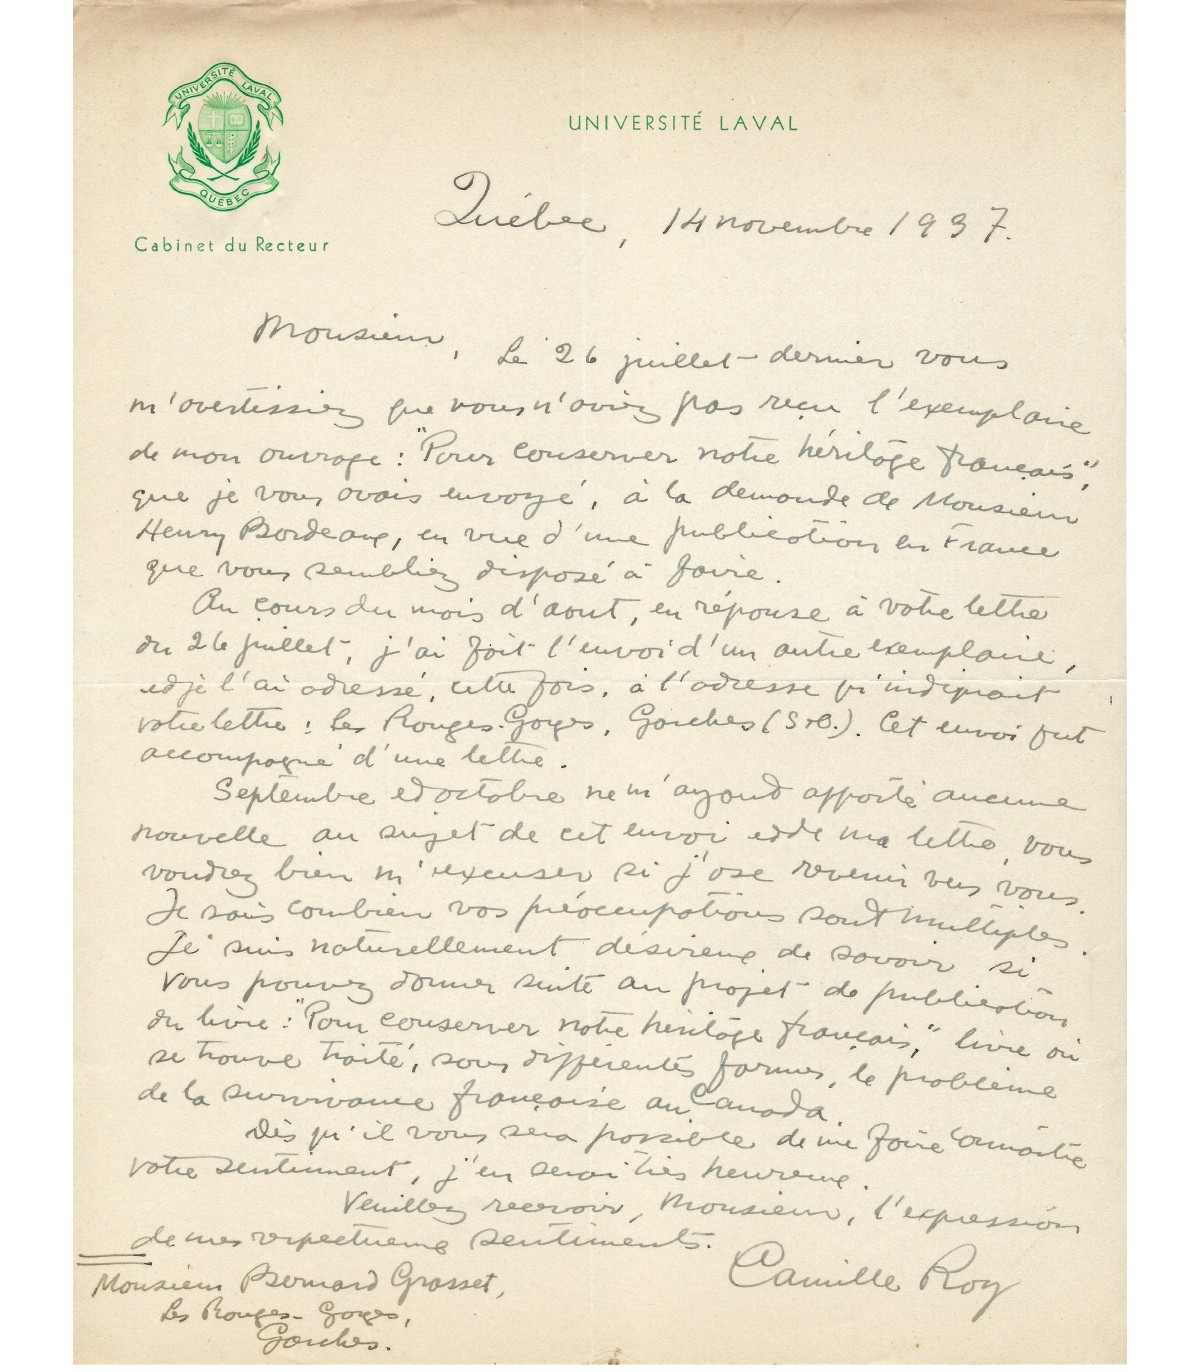 UNIVERSITÉ LAVAL
QUÉBEC
Cabinet du Recteur
UNIVERSITÉ LAVAL
Québec, 14 novembre 1937.
Monsieur,
Le 26 juillet dernier vous
m'avertissiez que vous n'aviez pas reçu l'exemplaire
de mon ouvrage : "Pour conserver notre héritage français",
que je vous avais envoyé, à la demande de Monsieur
Henry Bordeaux, en vue d'une publication en France
que vous sembliez disposé à faire.
Au cours du mois d'aout, en réponse à votre lettre
du 26 juillet, j'ai fait l'envoi d'un autre exemplaire,
et je l'ai adressé, cette fois, à l'adresse qu'indiquait
votre lettre : Les Rouges-Gorges, Garches (S-&-O.). Cet envoi fut
accompagné d'une lettre.
Septembre et octobre ne m'ayant apporté aucune
nouvelle au sujet de cet envoi et de ma lettre, vous
voudrez bien m'excuser si j'ose revenir vers vous.
Je sais combien vos préoccupations sont multiples.
Je suis naturellement désireux de savoir si
vous pouvez donner suite au projet de publication
du livre : "Pour conserver notre héritage français", livre où
se trouve traité, sous différentes formes, le problème
de la survivance française au Canada.
Dès qu'il vous sera possible de me faire connaître
votre sentiment, j'en serai très heureux.
Veuillez recevoir, Monsieur, l'expression
de mes respectueux sentiments.
Camille Roy
Monsieur Bernard Grasset,
Les Rouges-Gorges,
Garches.